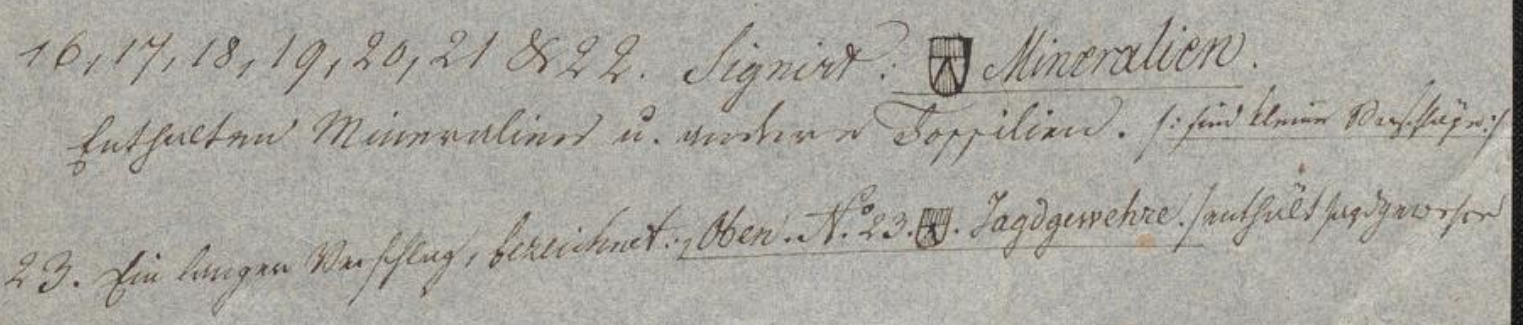 16, 17, 18, 19, 20, 21 & 22. Signirt: Mineralien.
Enthalten Mineralien u. andere Fossilien. /: sind kleine Verschläge :/
23. Ein langer Verschlag, bezeichnet: Oben. No. 23. Jagdgewehre. / enthält Jagdgewehre